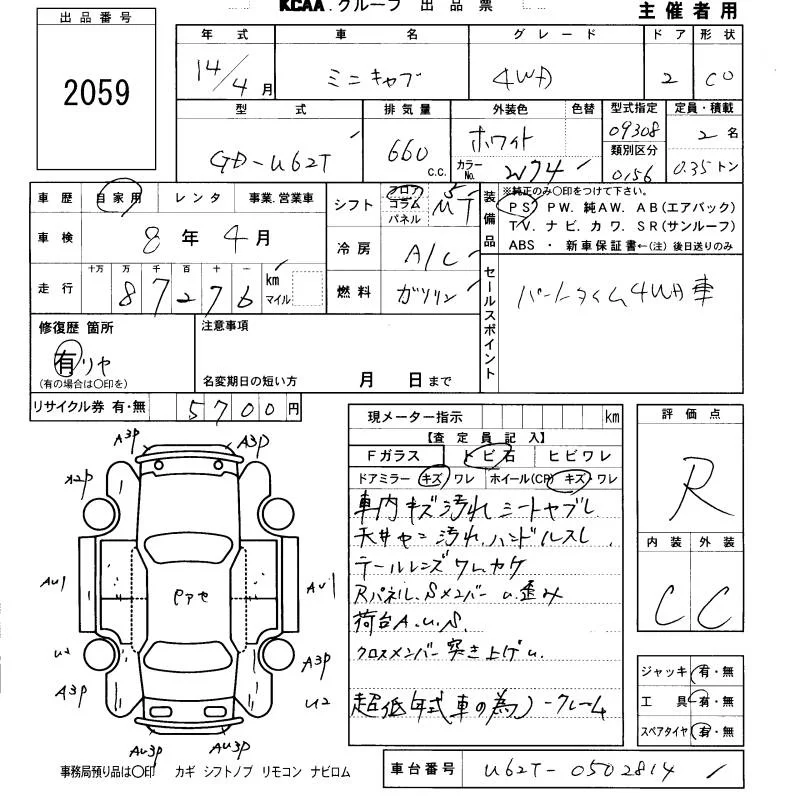 KCAA.グループ 出品票
主催者用
出品番号
2059
年式 車名 グレード ドア 形状
14/4月 ミニキャブ 4WD 2 CO
型式 排気量 外装色 色替 型式指定 定員・積載
GD-U62T 660 c.c. ホワイト カラーNo. W74 09308 2名
類別区分
0156 0.35トン
車歴 自家用 レンタ 事業.営業車
車検 8年4月
十万 万 千 百 十 一
走行 87276 km マイル
シフト フロア コラム パネル 5 MT
冷房 A/C
燃料 ガソリン
装備品 ※純正のみ〇印をつけて下さい。
PS PW. 純AW. AB(エアバック)
TV. ナビ. カワ. SR(サンルーフ)
ABS ・ 新車保証書←(注) 後日送りのみ
セールスポイント
パートタイム4WD車
修復歴 箇所
有リヤ
(有の場合は〇印を)
注意事項
名変期日の短い方 月 日まで
リサイクル券 有・無 5700円
現メーター指示 km
【査定員記入】
Fガラス トビ石 ヒビワレ
ドアミラー キズ ワレ ホイール(CP) キズ ワレ
車内キズ汚れ シートヤブレ
天井ヤニ汚れ.ハンドルスレ
テールレンズワレカケ
Rパネル.Sメンバーu.歪み
荷台A.u.S.
クロスメンバー突き上げu.
超低年式車の為ノークレーム
評価点
R
内装 外装
C C
ジャッキ 有・無
工具 有・無
スペアタイヤ 有・無
A3P A3P
X2P
AU1 AU1
U2 A3P
A3P U2
AU3P AU3P
事務局預り品は〇印 カギ シフトノブ リモコン ナビロム
車台番号 U62T-0502814